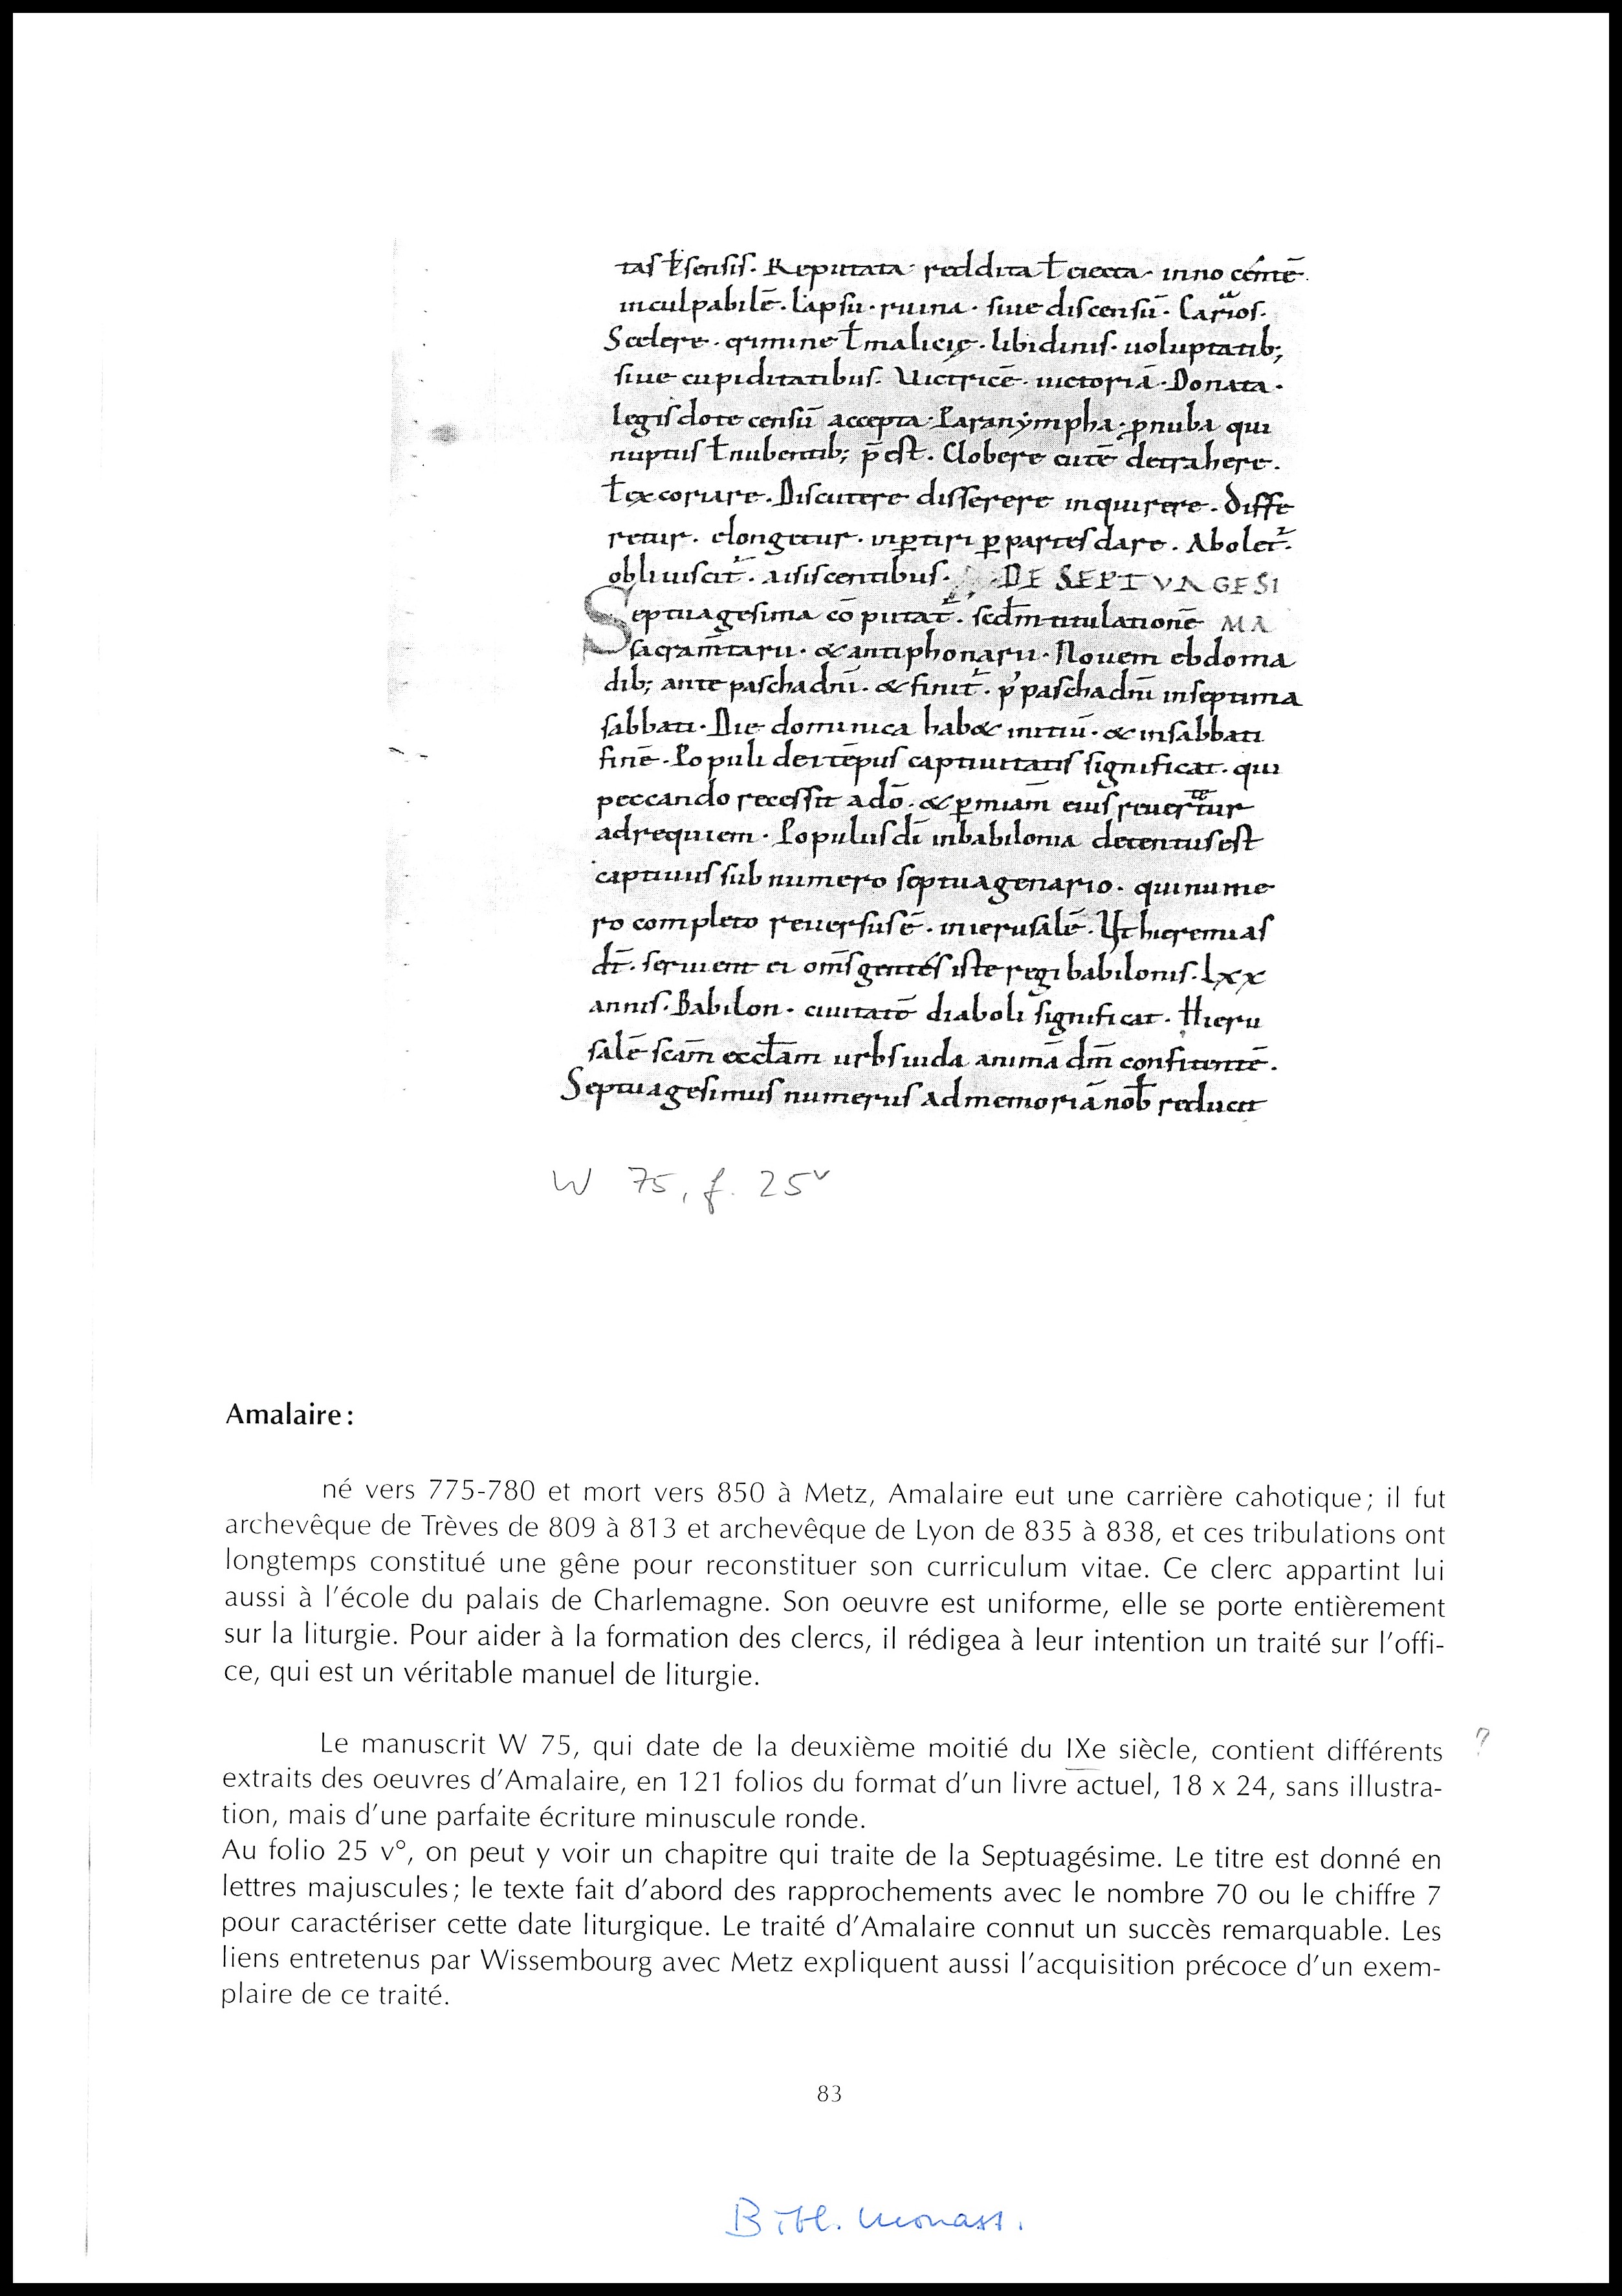 tas ł sensis. Reputata. reddita ł eiecta. innocentē.
inculpabilē. lapsū. ruina. siue discensū.
Scelere. crimine ł malicię. libidinis. uoluptatib;
siue cupiditatibus. Uictricē. uictoriā. Donata.
legis dote censū accepta. Paranympha. ꝓnuba qui
nuptus ł nubentib; p̄est. Globere cutē detrahere.
ł excoriare. Discutere disserere inquirere. Diffe
retur. elongetur. inꝑtiri ꝑ partes dare. Abolet᷑.
obliuiscit᷑. DE SEPTVAGESI
Septuagesima cōputat᷑. scđm titulationē MA
sacram̄tarii. & antiphonarii. Nouem ebdoma
dib; ante pascha dn̄i. & finit᷑. p᾿ pascha dn̄i in septima
sabbati. Die dominica hab& initiū. & in sabbati
finē. Populi dei tēpus captiuitatis significat. qui
peccando recessit a dō. & ꝑ miam̄ eius reuertitur
ad requiem. Populus dī in babilonia detentus est
captiuus sub numero septuagenario. qui nume
ro completo reuersus ē. in ierusalē. Ut hieremias
dt̄. seruient ei om̄s gentes iste regi babilonis. Lxx
annis. Babilon. ciuitatē diaboli significat. Hieru
salē scam̄ eccłam urbs uida animā dm̄ confitentē.
Septuagesimus numerus ad memoriā nob̄ reducit
W 75, f. 25v
Amalaire :
né vers 775-780 et mort vers 850 à Metz, Amalaire eut une carrière cahotique; il fut
archevêque de Trèves de 809 à 813 et archevêque de Lyon de 835 à 838, et ces tribulations ont
longtemps constitué une gêne pour reconstituer son curriculum vitae. Ce clerc appartint lui
aussi à l'école du palais de Charlemagne. Son oeuvre est uniforme, elle se porte entièrement
sur la liturgie. Pour aider à la formation des clercs, il rédigea à leur intention un traité sur l'offi-
ce, qui est un véritable manuel de liturgie.
Le manuscrit W 75, qui date de la deuxième moitié du IXe siècle, contient différents ?
extraits des oeuvres d'Amalaire, en 121 folios du format d'un livre actuel, 18 x 24, sans illustra-
tion, mais d'une parfaite écriture minuscule ronde.
Au folio 25 v°, on peut y voir un chapitre qui traite de la Septuagésime. Le titre est donné en
lettres majuscules; le texte fait d'abord des rapprochements avec le nombre 70 ou le chiffre 7
pour caractériser cette date liturgique. Le traité d'Amalaire connut un succès remarquable. Les
liens entretenus par Wissembourg avec Metz expliquent aussi l'acquisition précoce d'un exem-
plaire de ce traité.
83
Bibl. Monast.